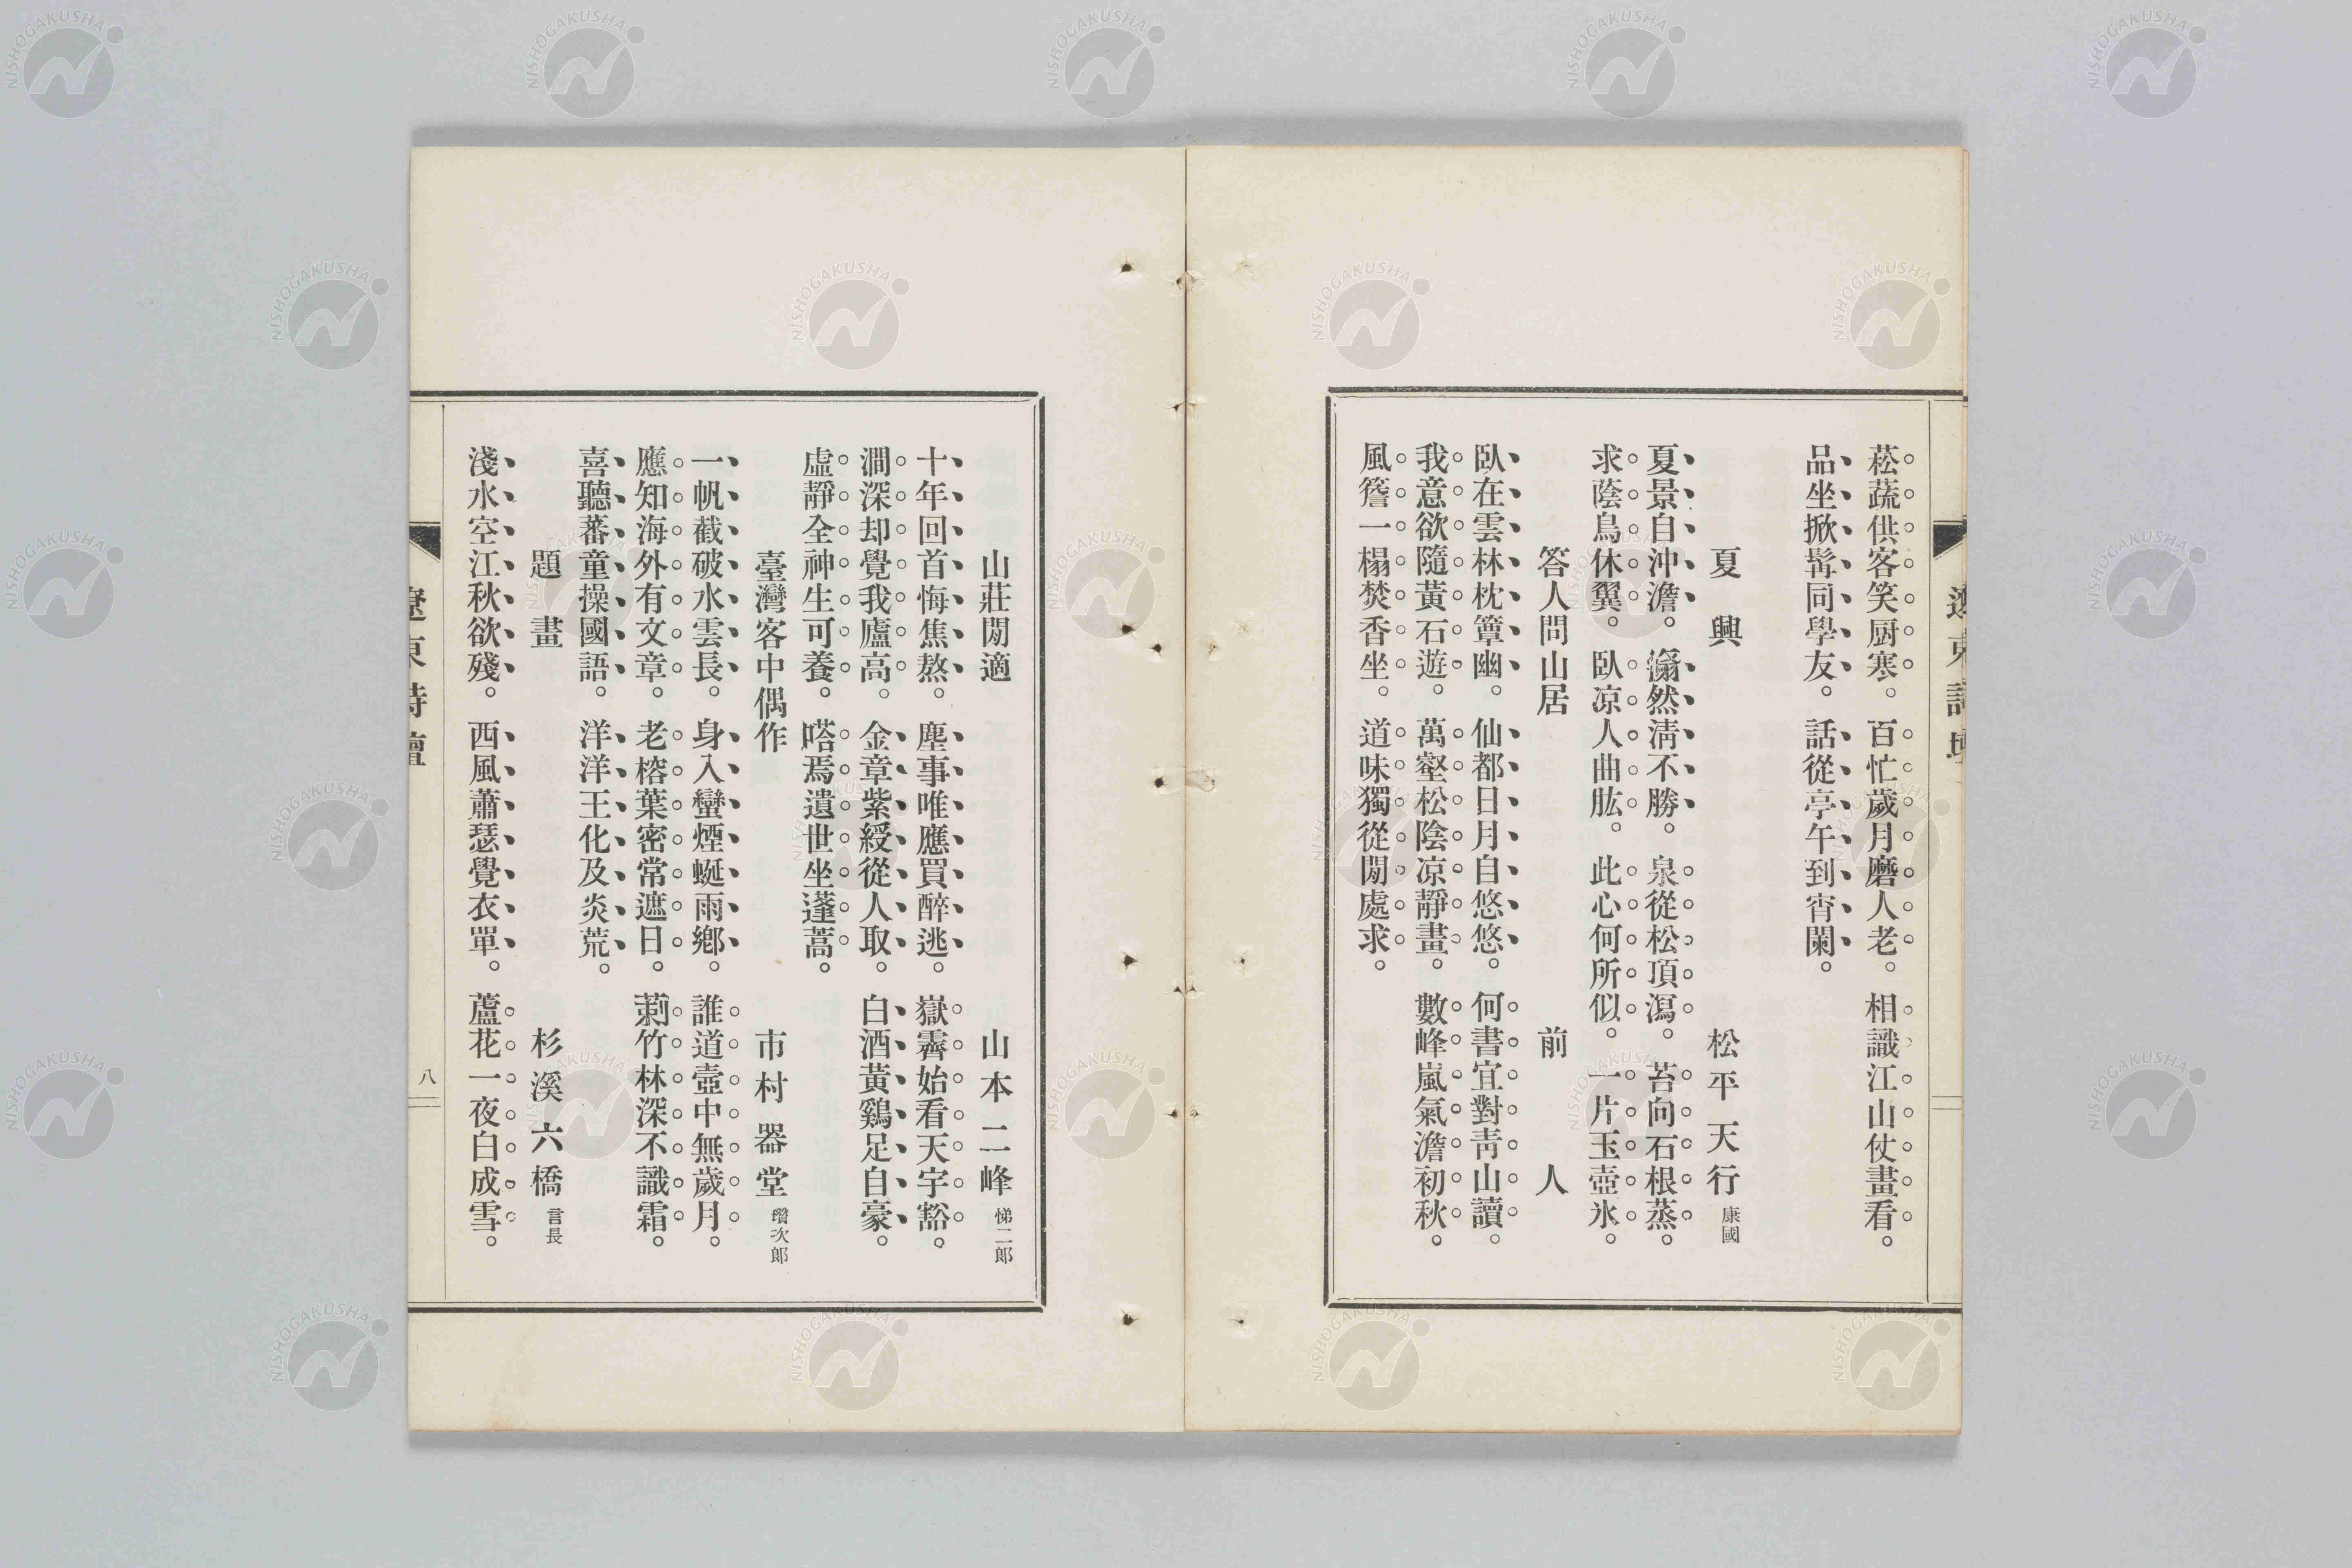 菘蔬供客笑厨寒。百忙歲月磨人老。相識江山仗畫看。
品坐掀髯同學友。話從亭午到宵闌。
夏興 松平天行 康國
夏景自沖澹。翛然淸不勝。泉從松頂瀉。苔向石根蒸。
求蔭鳥休翼。臥凉人曲肱。此心何所似。一片玉壺氷。
答人問山居 前人
臥在雲林枕簟幽。仙都日月自悠悠。何書宜對靑山讀。
我意欲隨黃石遊。萬壑松陰凉靜晝。數峰嵐氣澹初秋。
風簷一榻焚香坐。道味獨從閒處求。
山莊閒適 山本二峰 悌二郞
十年回首悔焦熬。塵事唯應買醉逃。嶽霽始看天宇豁。
澗深却覺我廬高。金章紫綬從人取。白酒黃鷄足自豪。
虛靜全神生可養。嗒焉遺世坐蓬蒿。
臺灣客中偶作 市村器堂 瓚次郞
一帆截破水雲長。身入蠻煙蜒雨鄕。誰道壺中無歲月。
應知海外有文章。老榕葉密常遮日。莿竹林深不識霜。
喜聽蕃童操國語。洋洋王化及炎荒。
題畫 杉溪六橋 言長
淺水空江秋欲殘。西風蕭瑟覺衣單。蘆花一夜白成雪。
遼東詩壇
八
NISHOGAKUSHA